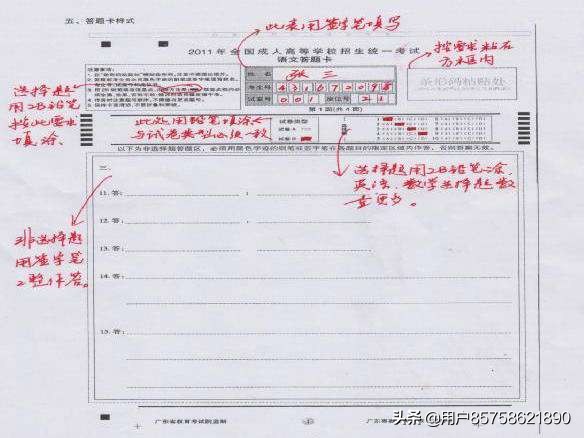 五、答题卡样式
此表用签字笔填写
2011年全国成人高等学校招生统一考试
语文答题卡
按要求粘在
方木区内
选择题
用2B铅笔
按此要求
填涂.
注意事项:
姓 名 张三
考生号 431672098
试室号 001 座位号 21
条形码粘贴处
第1页(共4页)
此处用铅笔填涂
与试卷类型必须一致
试卷类型
以下为非选择题答题区,必须用黑色字迹的钢笔或签字笔在各题目的指定区域内作答,否则答案无效。
选择题用2B铅笔涂,
英语、数学选择题数
量更多。
非选择题
用签字笔
工整作答。
三.
11.答:
12.答:
13.答:
14.答:
15.答:
广东省教育考试院监制
头条@用户85758621890